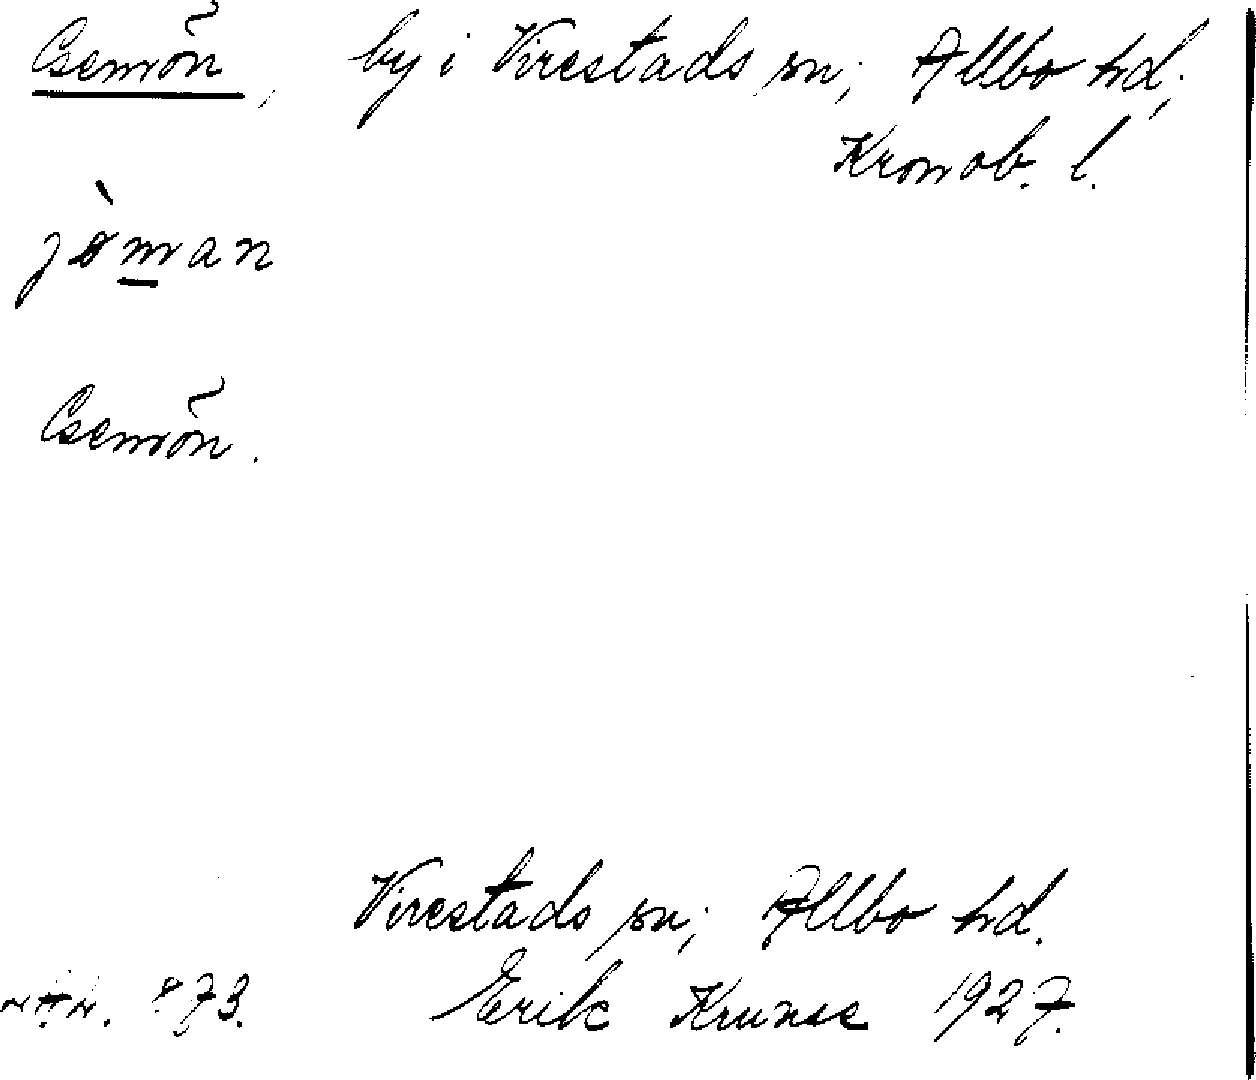 Esemõn, by i Virestads sn; Allbo hd;
Kronob. l.
Esemõn.
Virestads sn; Allbo hd.
Erik Krunse 1927.